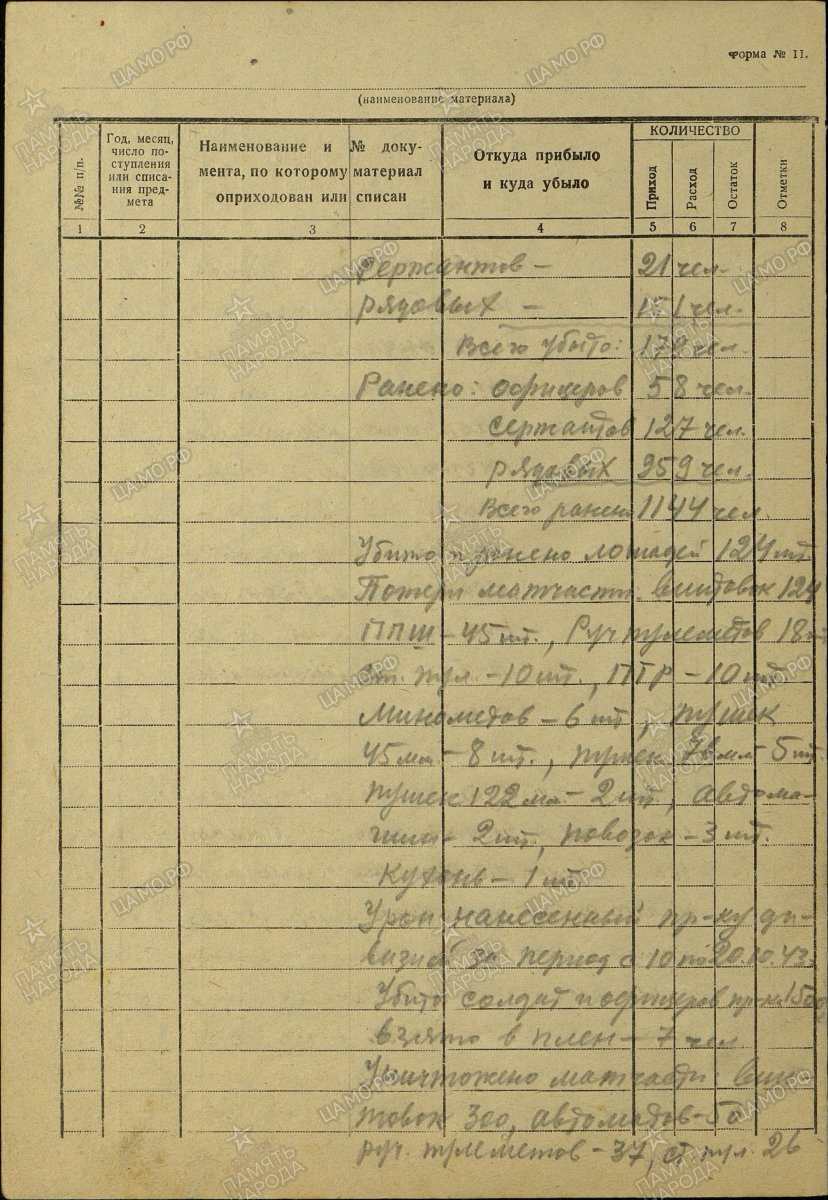 Форма № 11.
(наименование материала)
№№ п/п.
Год, месяц, число поступления или списания предмета
Наименование и № документа, по которому материал оприходован или списан
Откуда прибыло и куда убыло
КОЛИЧЕСТВО
Приход
Расход
Остаток
Отметки
1 2 3 4 5 6 7 8
Сержантов – 21 чел.
рядовых – чел.
Всего убыто: чел.
Ранено: офицеров 58 чел.
сержантов 127 чел.
рядовых 959 чел.
Всего ранен 1144 чел.
Убито и ранено лошадей 124 шт.
Потери матчасти: винтовок 124
ППШ – 45 шт., Руч пулеметов 18 шт
ст. пул. – 10 шт., ПТР – 10 шт.
Минометов – 6 шт, пушек
45 мм – 8 шт., пушек 76 мм – 5 шт.
пушек 122 мм – 2 шт, автома-
шин – 2 шт, повозок – 3 шт.
Кухонь – 1 шт
Урон нанесенный пр-ку ди-
визией за период с 10 по 20.10.43г
Убито солдат и офицеров пр-ка 1500,
взято в плен – 7 чел
Уничтожено матчасти: вин-
товок 300, автоматов – 50
руч. пулеметов – 37, ст пул. 26
ПАМЯТЬ НАРОДА
ЦАМО.РФ